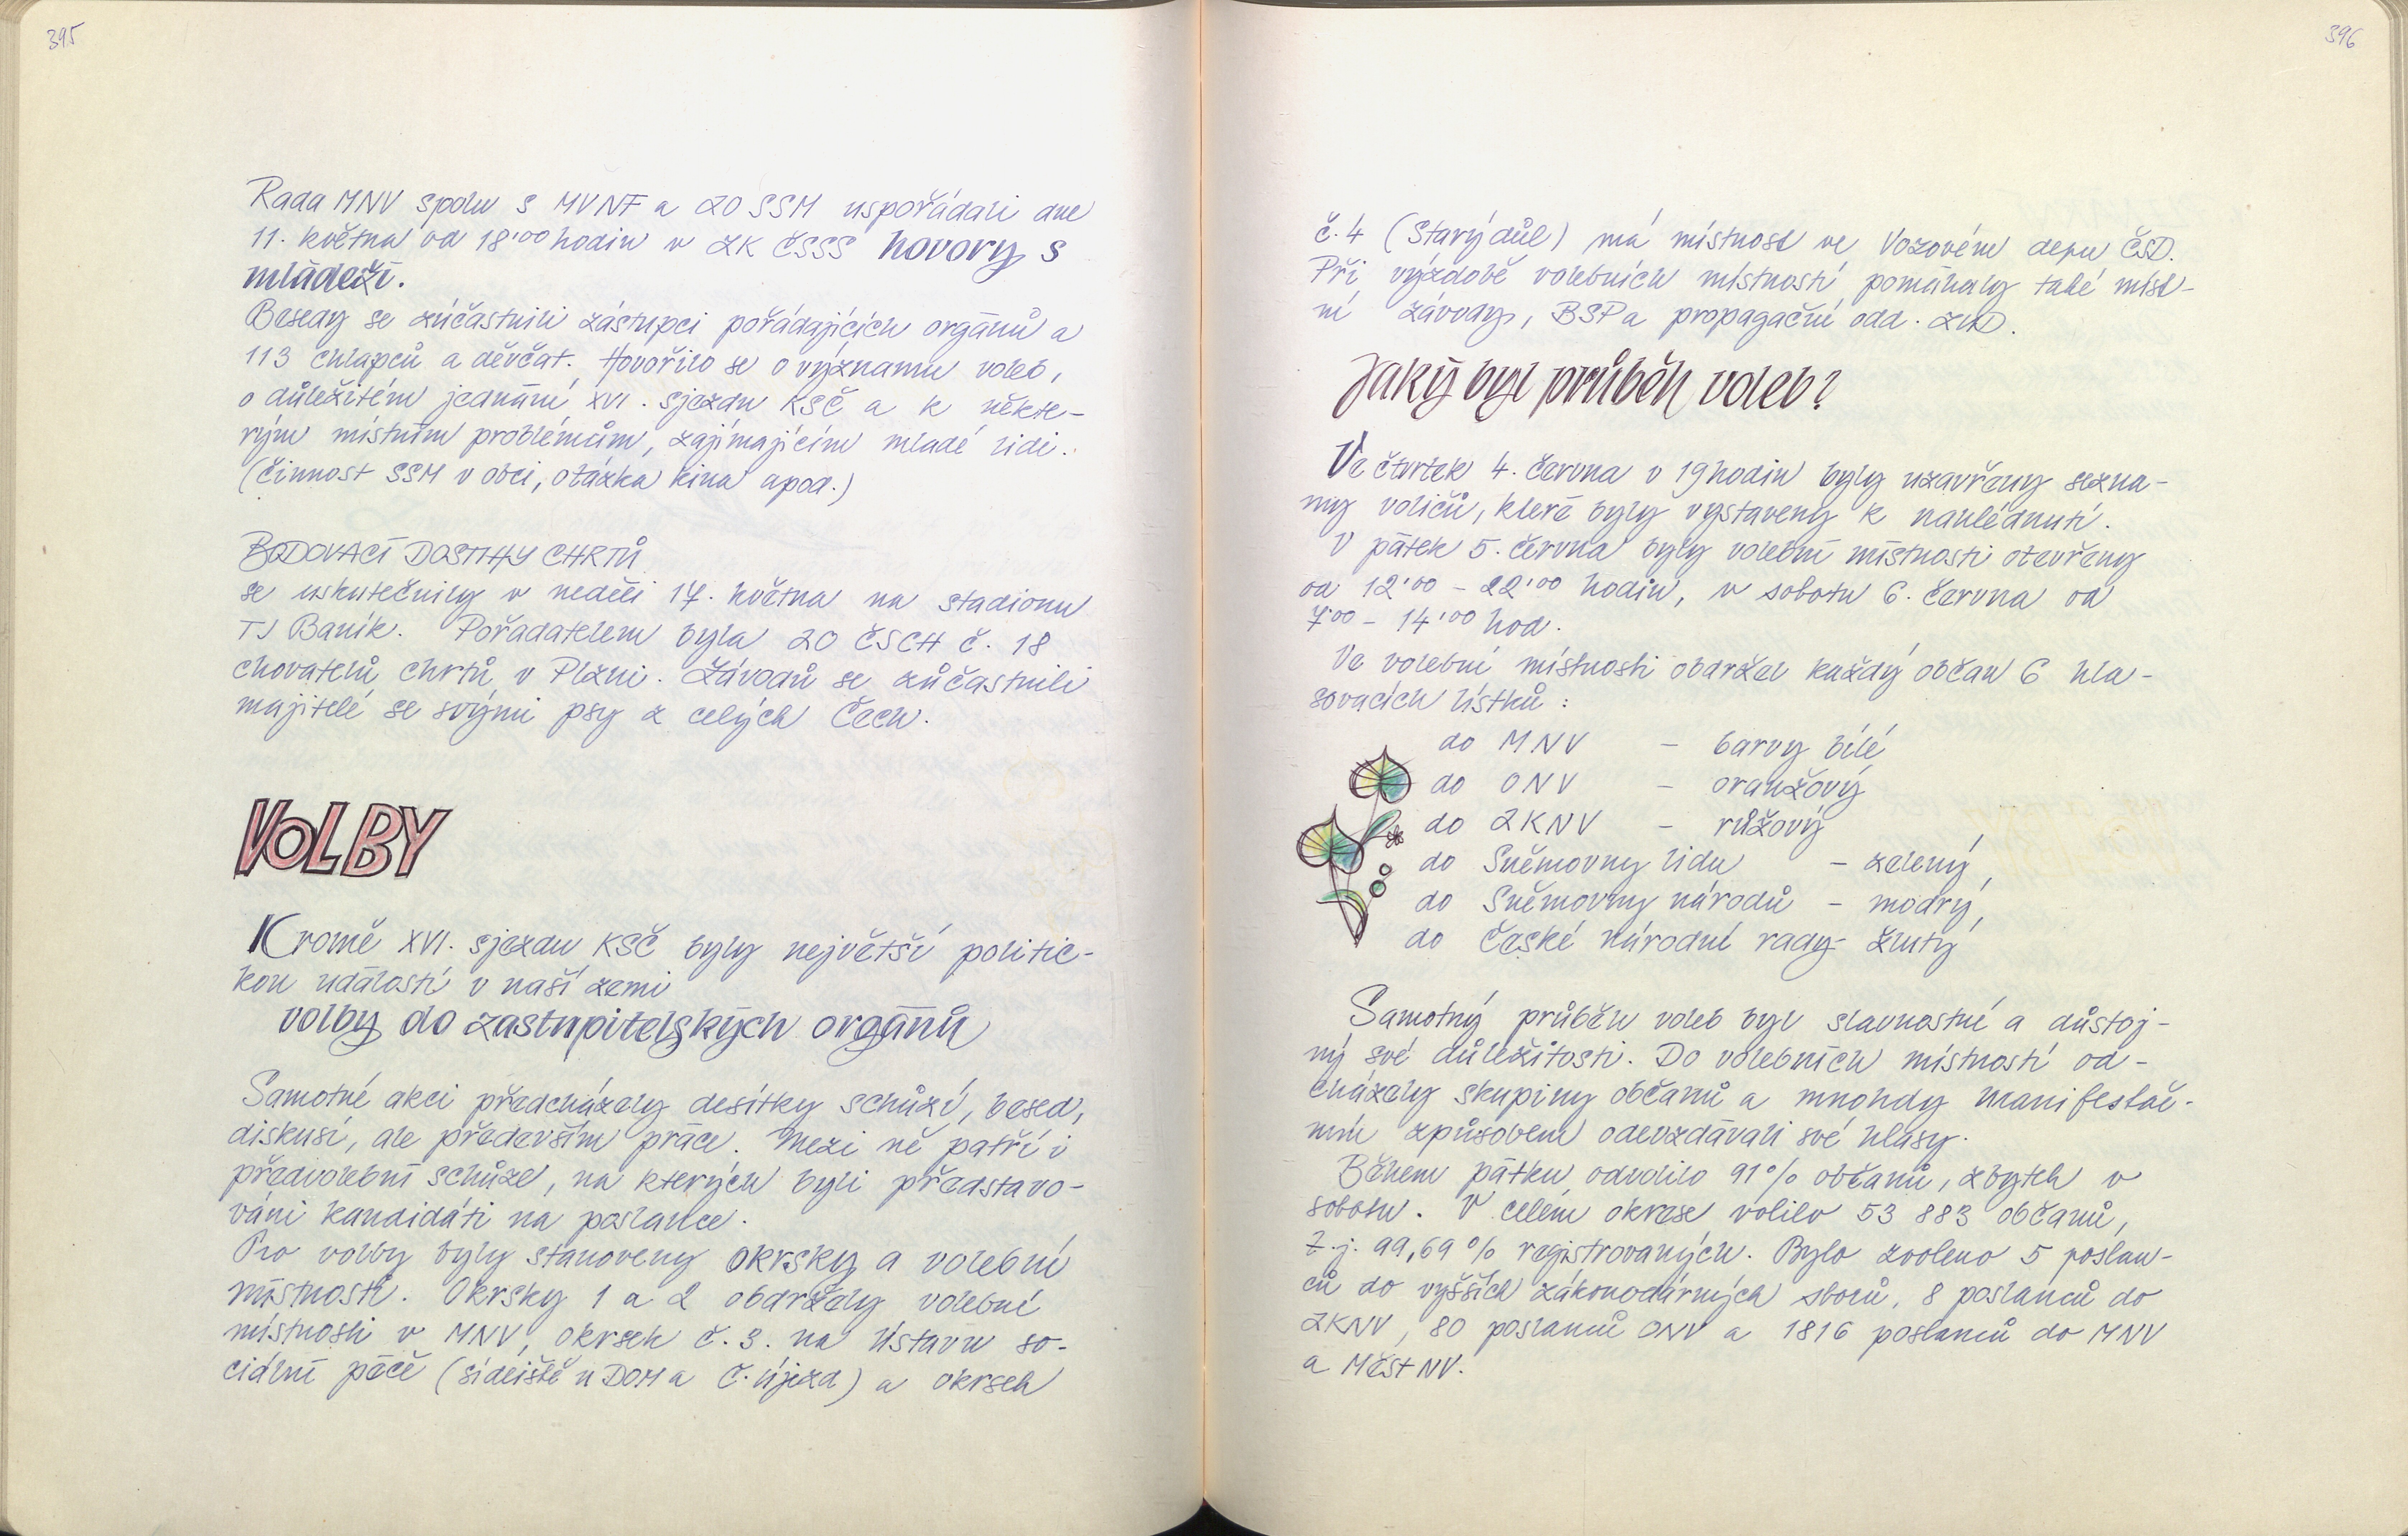 395
Rada MNV spolu s MVNF a ZO SSM uspořádali dne
11. května od 18'00 hodin v ZK ČSSS hovory s
mládeží.
Besedy se zúčastnili zástupci pořádajících orgánů a
113 chlapců a děvčat. Hovořilo se o významu voleb,
o důležitém jednání XVI. sjezdu KSČ a k někte-
rým místním problémům, zajímajícím mladé lidi.
(činnost SSM v obci, otázka kina apod.)
BODOVACÍ DOSTIHY CHRTŮ
se uskutečnily v neděli 17. května na stadionu
TJ Baník. Pořadatelem byla ZO ČSCH č. 18
chovatelů chrtů v Plzni. Závodů se zúčastnili
majitelé se svými psy z celých Čech.
VOLBY
Kromě XVI. sjezdu KSČ byly největší politic-
kou událostí v naší zemi
volby do zastupitelských orgánů
Samotné akci předcházely desítky schůzí, besed,
diskusí, ale především práce. Mezi ně patří i
předvolební schůze, na kterých byli představo-
váni kandidáti na poslance.
Pro volby byly stanoveny okrsky a volební
místnosti. Okrsky 1 a 2 obdržely volební
místnosti v MNV, okrsek č. 3. na Ústavu so-
ciální péče (sídliště u DOM a Č. Újezd) a okrsek
396
č. 4 (Starý důl) má místnost ve Vozovém depu ČSD.
Při výzdobě volebních místností pomáhaly také míst-
ní závody, BSP a propagační odd. ZUD.
Jaký byl průběh voleb?
Ve čtvrtek 4. června v 19 hodin byly uzavřeny sezna-
my voličů, které byly vystaveny k nahlédnutí.
V pátek 5. června byly volební místnosti otevřeny
od 12'00 - 22'00 hodin, v sobotu 6. června od
7'00 - 14'00 hod.
Ve volební místnosti obdržel každý občan 6 hla-
sovacích lístků :
do MNV - barvy bílé,
do ONV - oranžový
do ZKNV - růžový
do Sněmovny lidu - zelený,
do Sněmovny národů - modrý,
do České národní rady - žlutý
Samotný průběh voleb byl slavnostní a důstoj-
ný své důležitosti. Do volebních místností od-
cházely skupiny občanů a mnohdy manifestač-
ním způsobem odevzdávali své hlasy.
Během pátku odvolilo 91% občanů, zbytek v
sobotu. V celém okrese volilo 53 883 občanů,
t.j. 99,69% registrovaných. Bylo zvoleno 5 poslan-
ců do vyšších zákonodárných sborů, 8 poslanců do
ZKNV, 80 poslanců ONV a 1816 poslanců do MNV
a Měst NV.